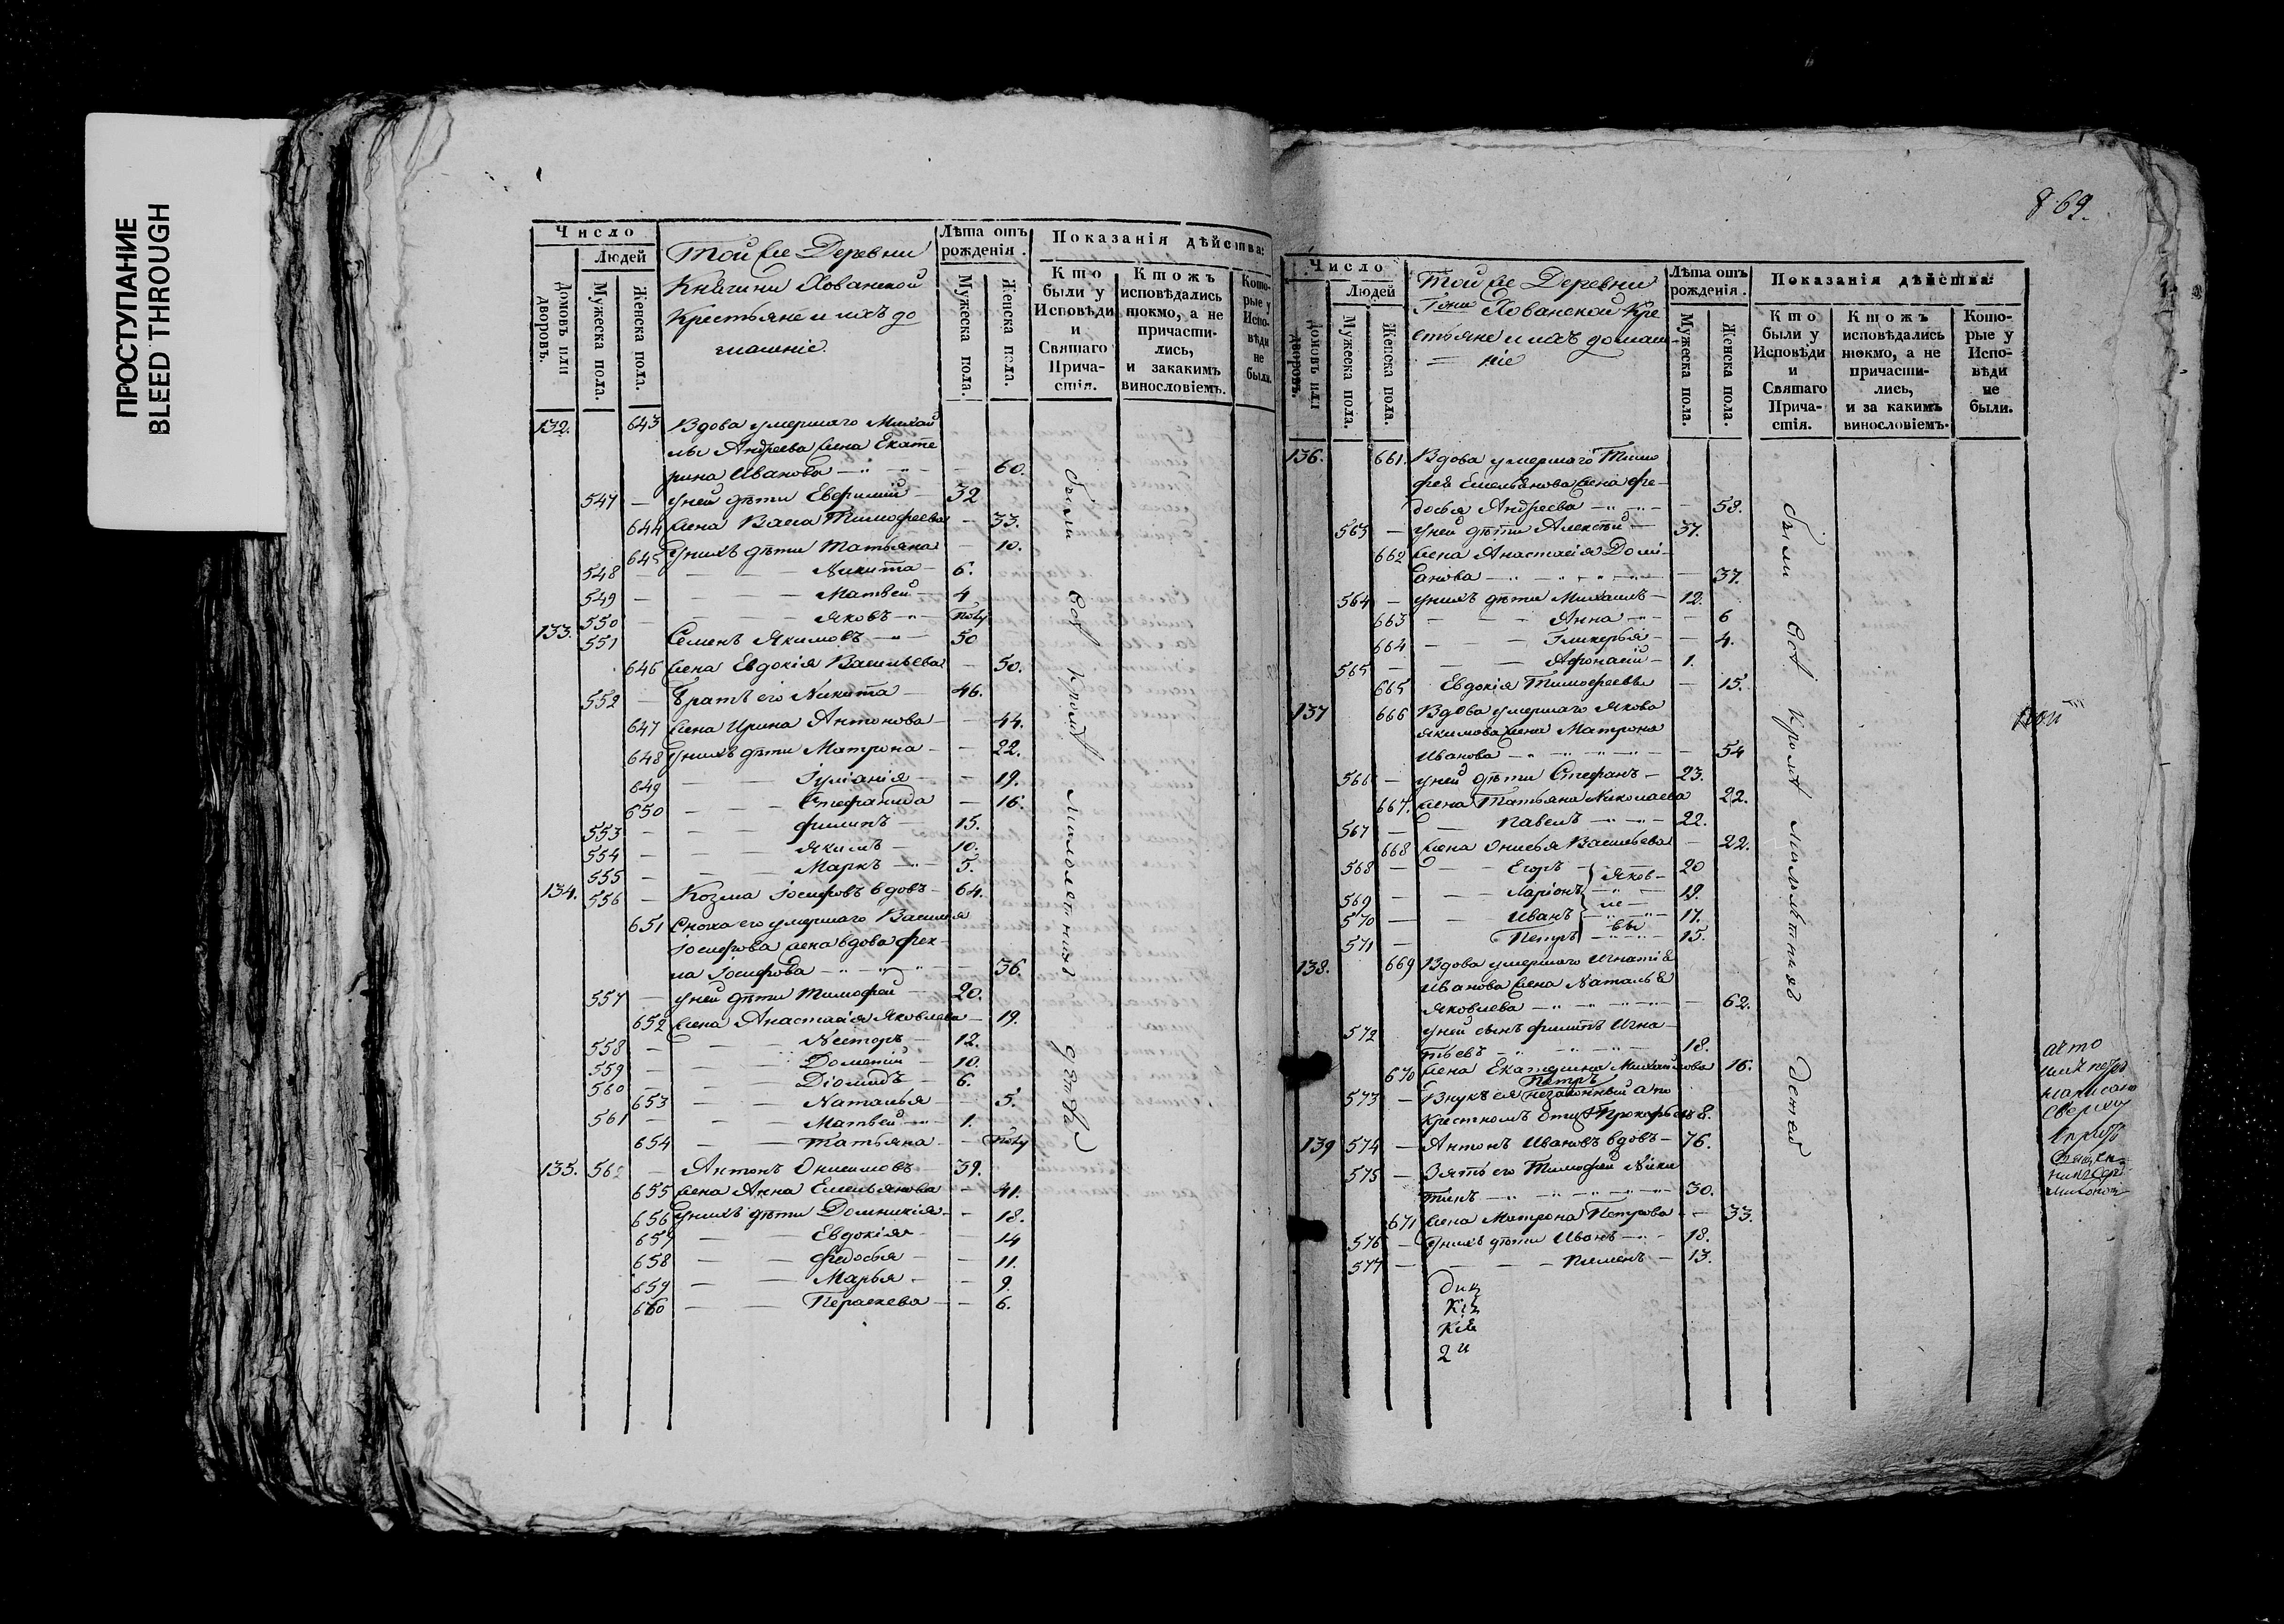 ПРОСТУПАНИЕ
BLEED THROUGH
Число
Людей
Домовъ или дворовъ.
Мужеска пола.
Женска пола.
Той же Деревни
Княгини Хованской
Крестьяне и ихъ до
машніе.
Лѣта отъ рожденія.
Мужеска пола.
Женска пола.
Показанія дѣйства:
Кто были у Исповѣди и Святаго Причастія.
Ктожъ исповѣдались токмо, а не причастились, и закакимъ винословіемъ.
Которые у Исповѣди не были.
132. 643 Вдова умершаго Михай
лы Андреева жена Екате
рина Иванова 60.
547 — уней дѣти Евфимий 32
644 жена Васса Тимофеева 33.
645 унихъ дѣти Татьяна 10.
548 Никита 6.
549 Матвей 4
550 Яковъ полу
133. 551 Семенъ Якимовъ 50
646 жена Евдокія Васильева 50.
552 — братъ его Никита 46.
647 жена Ирина Антонова 44.
648 унихъ дѣти Матрона 22.
649 Іуліанія 19.
650 Стефанида 16.
553 Филипъ 15.
554 Якимъ 10.
555 Маркъ 5.
134. 556 — Козма Іосифовъ вдовъ 64.
651 Сноха его умершаго Василия
Іосифова жена вдова Фек
ла Іосифова 36.
557 — уней дѣти Тимофей 20.
652 жена Анастасія Яковлева 19.
558 Несторъ 12.
559 Дометій 10.
560 Діомидъ 6.
653 Наталья 5.
561 Матвей 1.
654 Татьяна полу
135. 562 — Антонъ Онисимовъ 39.
655 жена Анна Емельянова 41.
656 унихъ дѣти Домникія 18.
657 Евдокія 14
658 Федосья 11.
659 Марья 9.
660 Пераскева 6.
были всѣ кромѣ малолѣтнихъ дѣтей
869.
Число
Людей
Домовъ или дворовъ.
Мужеска пола.
Женска пола.
Той же Деревни
Гжи Хованской Кре
стьяне и ихъ домаш-
ніе
Лѣта отъ рожденія.
Мужеска пола.
Женска пола.
Показанія дѣйства:
Кто были у Исповѣди и Святаго Причастія.
Ктожъ исповѣдались токмо, а не причастились, и за какимъ винословіемъ.
Которые у Исповѣди не были.
136. 661. Вдова умершаго Тимо
фея Емельянова жена Фе-
досья Андреева 58.
563 — уней дѣти Алексѣй 37.
662 жена Анастасія
37.
564 — унихъ дѣти Михаилъ 12.
663 Анна 6
664 Гликерья 4.
565 Афонасій 1.
665 Евдокія Тимофеева 15.
137 666 Вдова умершаго Якова
Якимова жена Матрона
Иванова 54
566 — уней дѣти Стефанъ 23.
667. жена Татьяна Николаева 22.
567 Павелъ 22.
668 жена Онисья Васильева 22.
568 Егоръ Яков- 20
569 Ларіонъ ле- 19.
570 Иванъ вы 17.
571 Петръ 15.
138. 669 Вдова умершаго Игнатія
Иванова жена Наталья
Яковлева 62.
572 уней сынъ Филипъ Игна-
тьевъ 18.
670 жена Екатерина Михайлова 16.
Петръ
573 — Внукъ ея незаконный а по
крестномъ отцѣ Прокофьевъ 8.
139 574 — Антонъ Ивановъ вдовъ 76.
575 — Зять его Тимофей Ники
тинъ 30.
671 жена Матрона Петрова 33.
576 — унихъ дѣти Иванъ 18.
577 Пименъ 13.
были всѣ кромѣ малолѣтнихъ дѣтей
написано
сверху